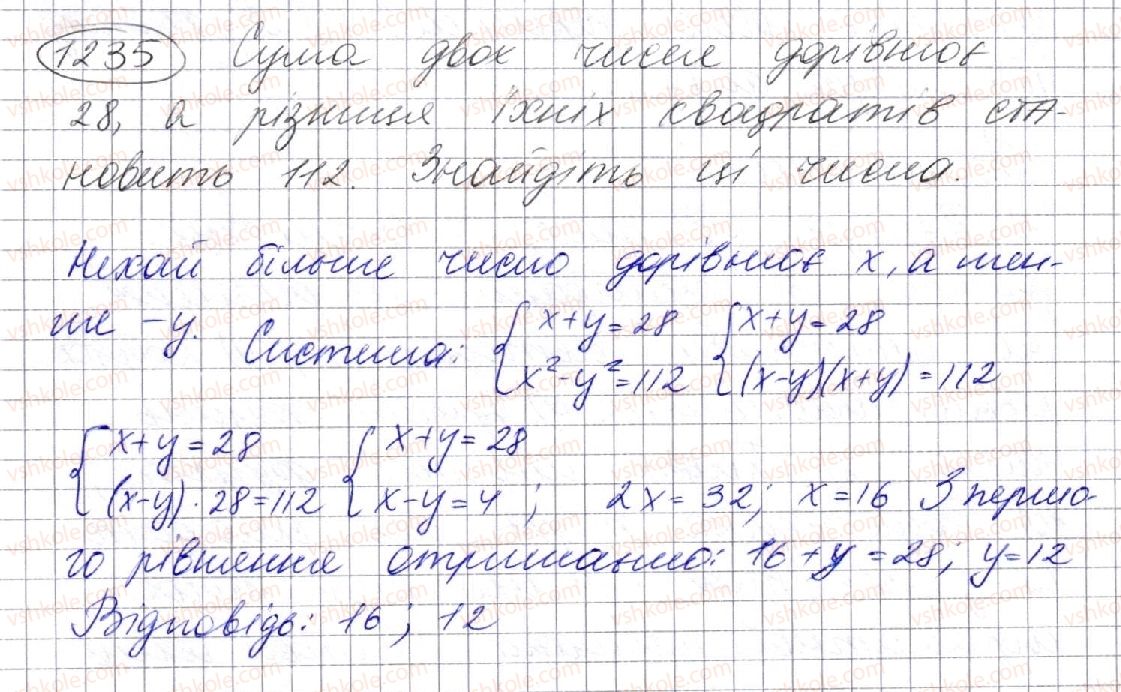 1235 Сума двох чисел дорівнює
28, а різниця їхніх квадратів ста-
новить 112. Знайдіть ці числа.
Нехай більше число дорівнює x, а мен-
ше – y. Система: { x+y=28 { x+y=28
x²-y²=112 (x-y)(x+y)=112
{ x+y=28 { x+y=28
(x-y)·28=112 x-y=4 ; 2x=32; x=16 З першо-
го рівняння отримаємо: 16+y=28; y=12
Відповідь: 16 ; 12